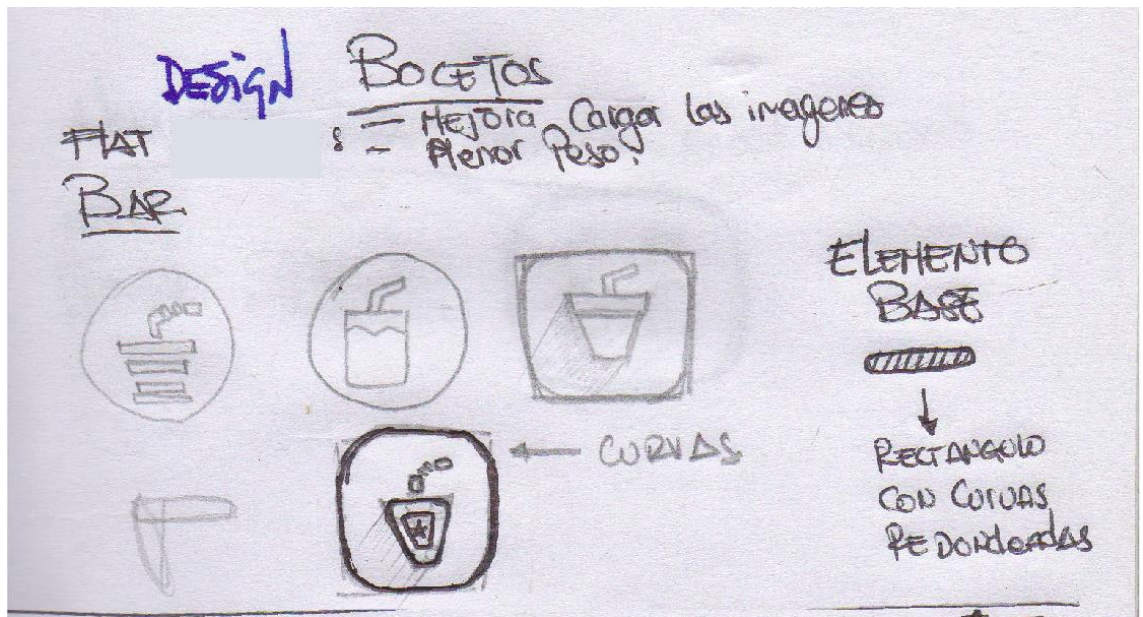 DESIGN BOCETOS
FLAT : - MEJORA Cargar las imagenes
- Menor Peso.
BAR
ELEMENTO
BASE
← CURVAS
RECTANGULO
CON CURVAS
REDONDEADAS